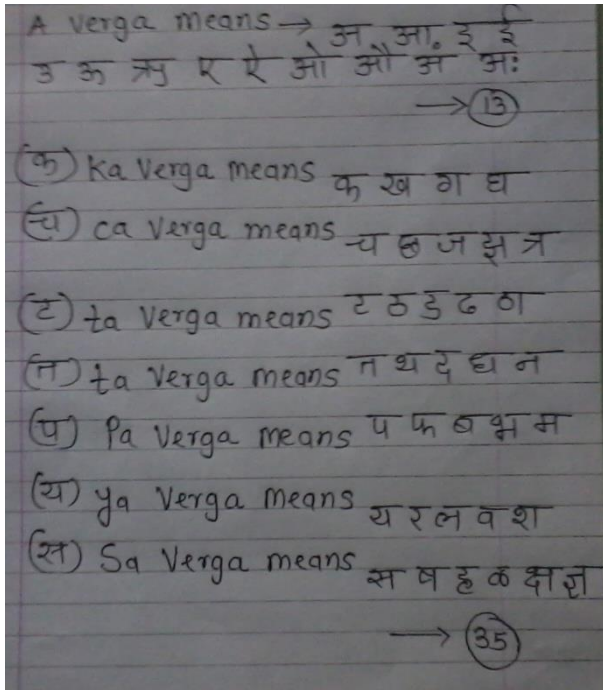 A verga means → अ आ. इ ई
उ ऊ ऋ ए ऐ ओ औ अ अः
→ 13
(क) Ka Verga means क ख ग घ
(च) ca Verga means च छ ज झ त्र
(ट) ta Verga means ट ठ ड ढ ठा
(त) ta Verga means त थ द ध न
(प) Pa Verga means प फ ब भ म
(य) ya Verga means य र ल व श
(स) Sa Verga means स ष ह ळ क्ष ज्ञ
→ 35